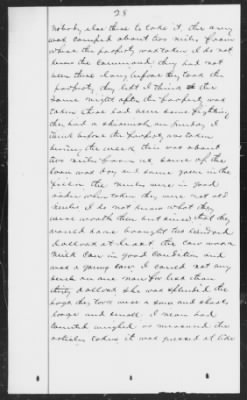 28
nobody else there to take it. the army
was camped about two miles from
where the property was taken I do not
know the command they had not
been there long before they took the
property they left I think the
same night after the property was
taken there had been some fighting
they had a skirmish on Sunday I
think before the property was taken
during the week this was about
two miles from us some of the
corn was dry and some green in the
field the mules were in good
order when taken they were not old
mules I do not know what they
were worth then but since that they
would have brought two hundred
dollars at least the cow was a
milch cow in good condition and
was a young cow I could not buy
such an one now for less than
thirty dollars she was splendid the
hogs they took were a sow and shoats
large and small. I mean had
counted weighed or measured the
articles taken it was guessed at like